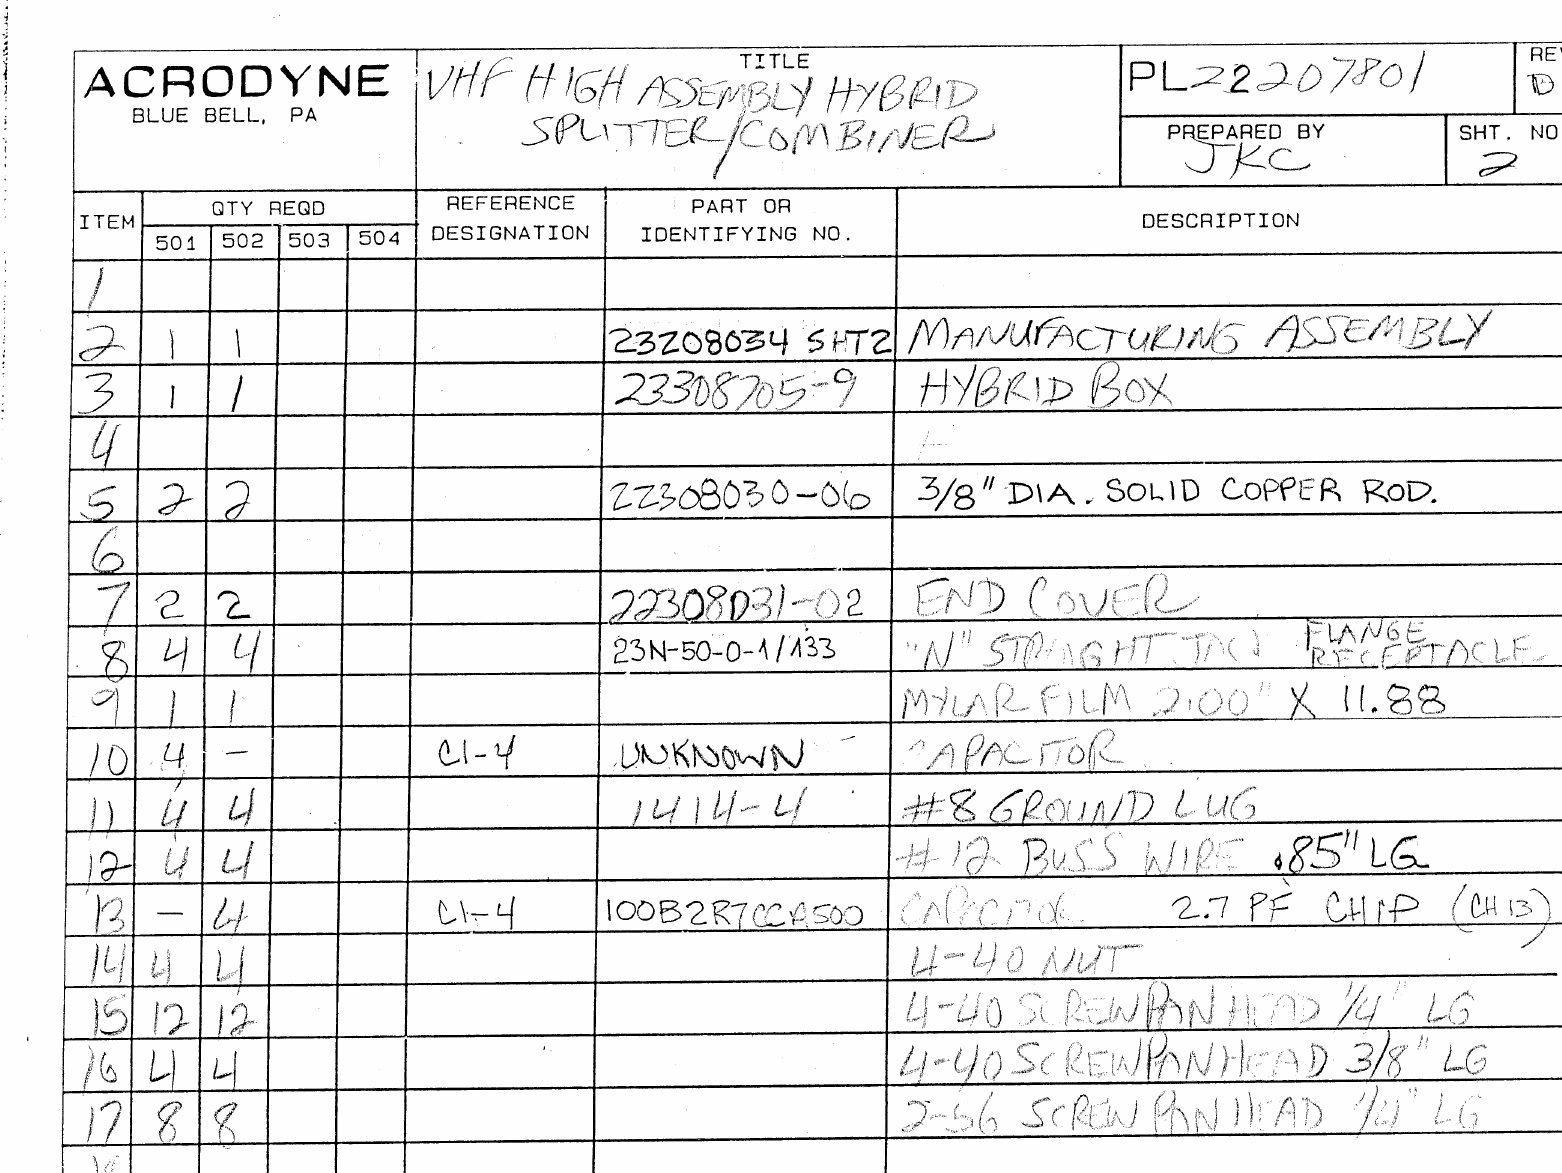 ACRODYNE
BLUE BELL, PA
TITLE
VHF HIGH ASSEMBLY HYBRID
SPLITTER/COMBINER
PL22207801
REV
D
PREPARED BY
JKC
SHT. NO
2
ITEM
QTY REQD
501 502 503 504
REFERENCE
DESIGNATION
PART OR
IDENTIFYING NO.
DESCRIPTION
1
2 1 1 23208034 SHT2 MANUFACTURING ASSEMBLY
3 1 1 23308705-9 HYBRID BOX
4
5 2 2 22308030-06 3/8" DIA. SOLID COPPER ROD.
6
7 2 2 22308031-02 END COVER
8 4 4 23N-50-0-1/133 "N" STRAIGHT FLANGE
RECEPTACLE
9 1 1 MYLAR FILM 2.00" X 11.88
10 4 - C1-4 UNKNOWN CAPACITOR
11 4 4 1414-4 #8 GROUND LUG
12 4 4 #12 BUSS WIRE .85" LG
13 - 4 C1-4 100B2R7CCA500 CAPACITOR 2.7 PF CHIP (CH13)
14 4 4 4-40 NUT
15 12 12 4-40 SCREW PAN HEAD 1/4" LG
16 4 4 4-40 SCREW PAN HEAD 3/8" LG
17 8 8 2-56 SCREW PAN HEAD 1/4" LG